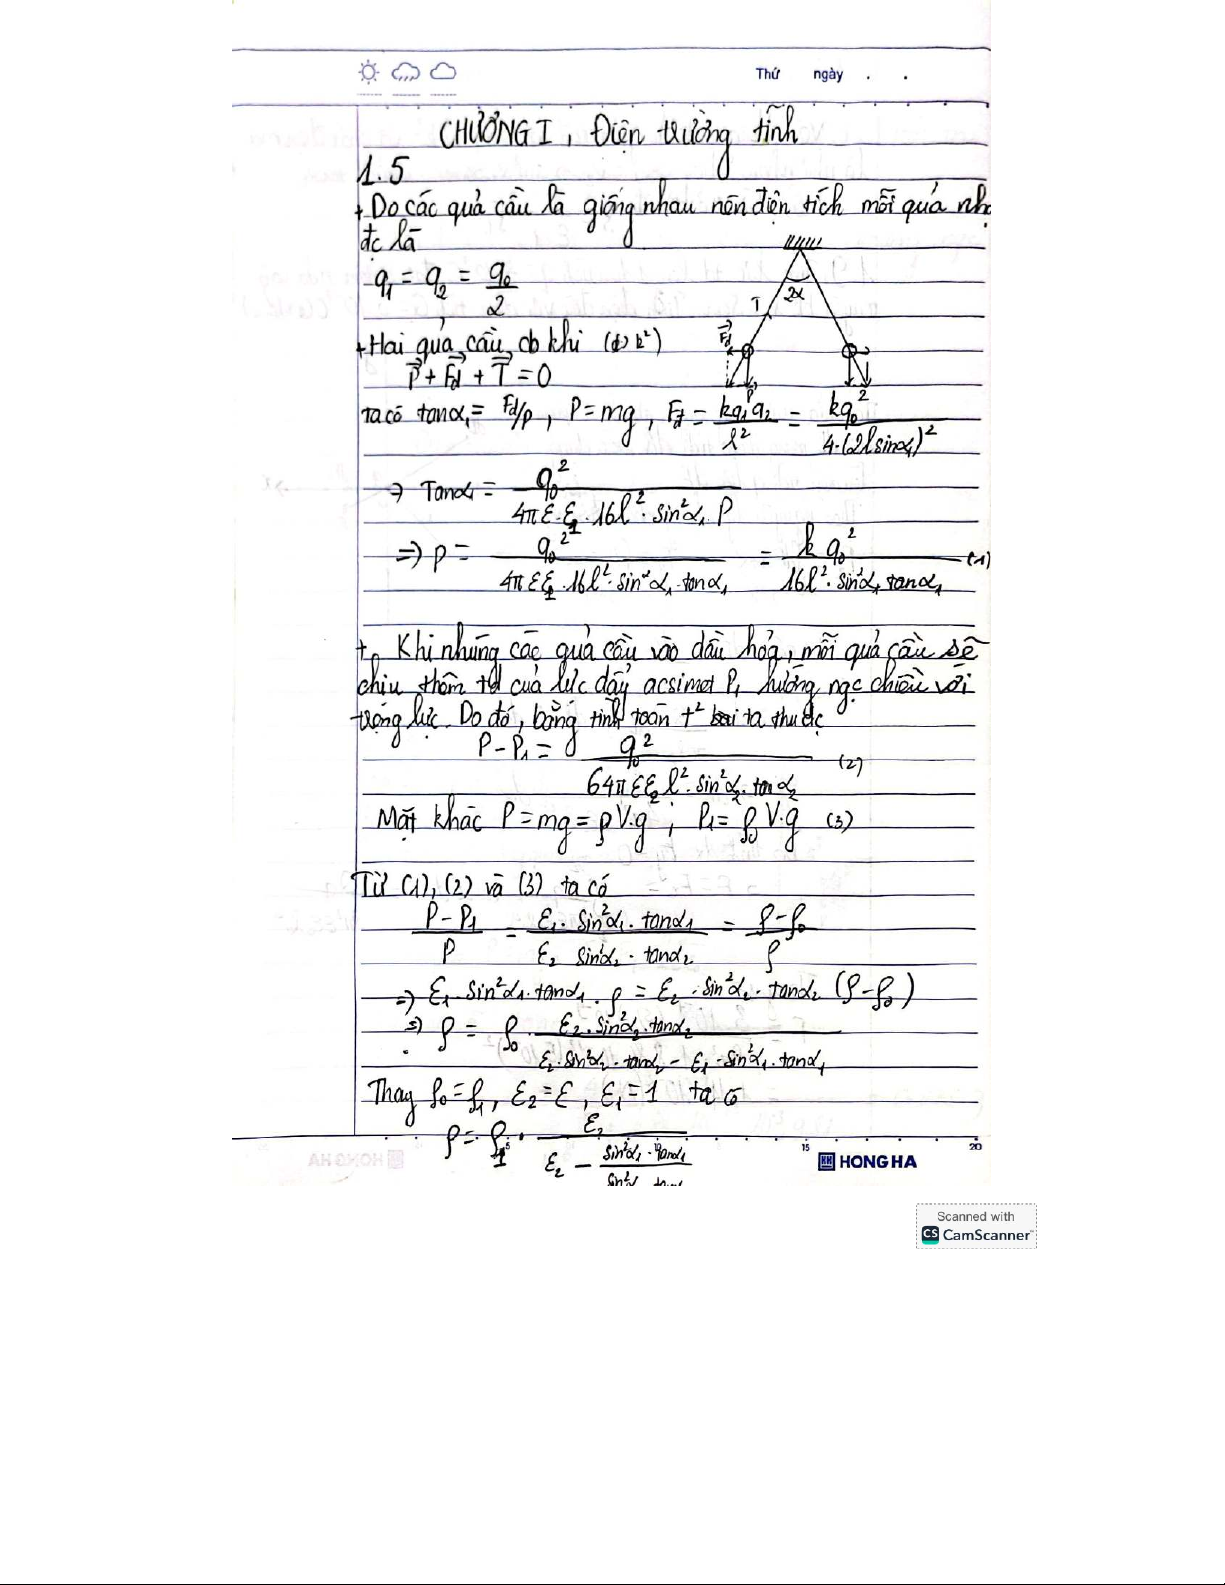 Thứ ngày . .
CHƯƠNG I, Điện trường tĩnh
1.5
+ Do các quả cầu là giống nhau nên điện tích mỗi quả nh
đc là
q₁ = q₂ = q₀/2
2α
T
+ Hai quả cầu cb khi (đ) k²)
Fđ
P
P⃗ + F⃗đ + T⃗ = 0
ta có tanα₁ = Fđ/P, P = mg, Fđ = kq₁q₂/l² = kq₀²/4.(2lsinα₁)²
→ Tanα₁ = q₀²/4πε.ε₁.16l².sin²α₁.P
=> P = q₀²/4πεε₁.16l².sin²α₁.tanα₁ = kq₀²/16l².sin²α₁ tanα₁ (1)
+ Khi nhúng các quả cầu vào dầu hỏa, mỗi quả cầu sẽ
chịu thêm td của lực đẩy acsimet P₁ hướng ngc chiều với
trọng lực. Do đó, bằng tính toán t² bài ta thu đc
P - P₁ = q₀²/64πεε₂l².sin²α₂.tanα₂ (2)
Mặt khác P = mg = ρV.g ; P₁ = ρ₀V.g (3)
Từ (1), (2) và (3) ta có
P - P₁/P = ε₁.sin²α₁.tanα₁/ε₂ sin²α₂.tanα₂ = ρ - ρ₀/ρ
=> ε₁.sin²α₁.tanα₁.ρ = ε₂.sin²α₂.tanα₂ (ρ - ρ₀)
=> ρ = ρ₀ ε₂.sin²α₂.tanα₂/ε₂.sin²α₂.tanα₂ - ε₁.sin²α₁.tanα₁
Thay ρ₀ = ρ₁, ε₂ = ε, ε₁ = 1 ta có
ρ = ρ₁ . ε₂/ε₂ - sin²α₁.tanα₁/sin²α tan
15 20
HONG HA
Scanned with
CS CamScanner